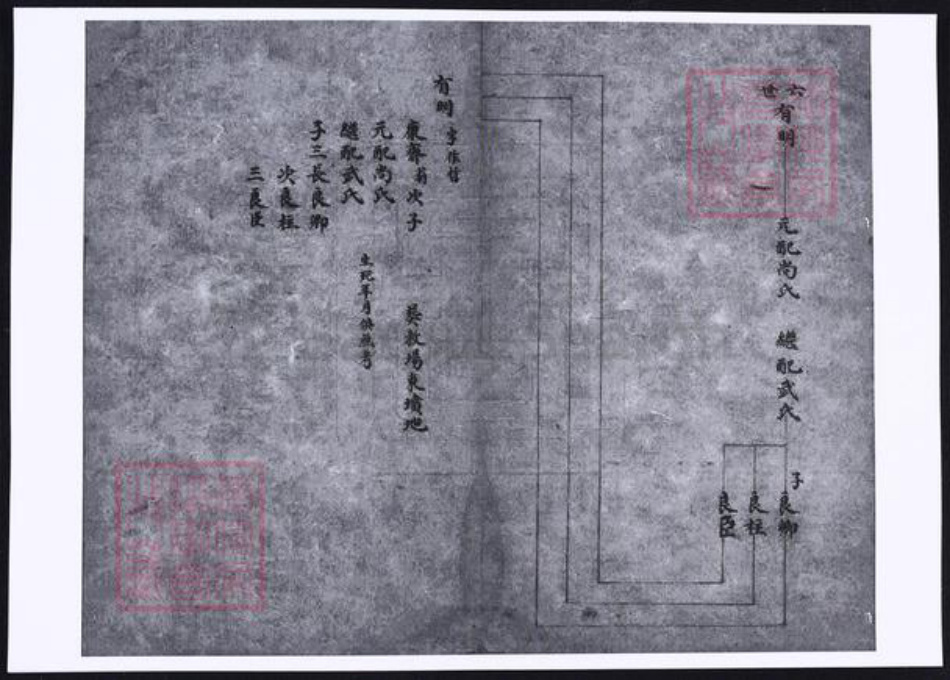 六世
有明
元配尚氏 繼配武氏
子
良卿
良柱
良臣
有明 字
次子 葬教場東墳地
元配尚氏
繼配武氏 生死年月俱無考
子三長良卿
次良柱
三良臣